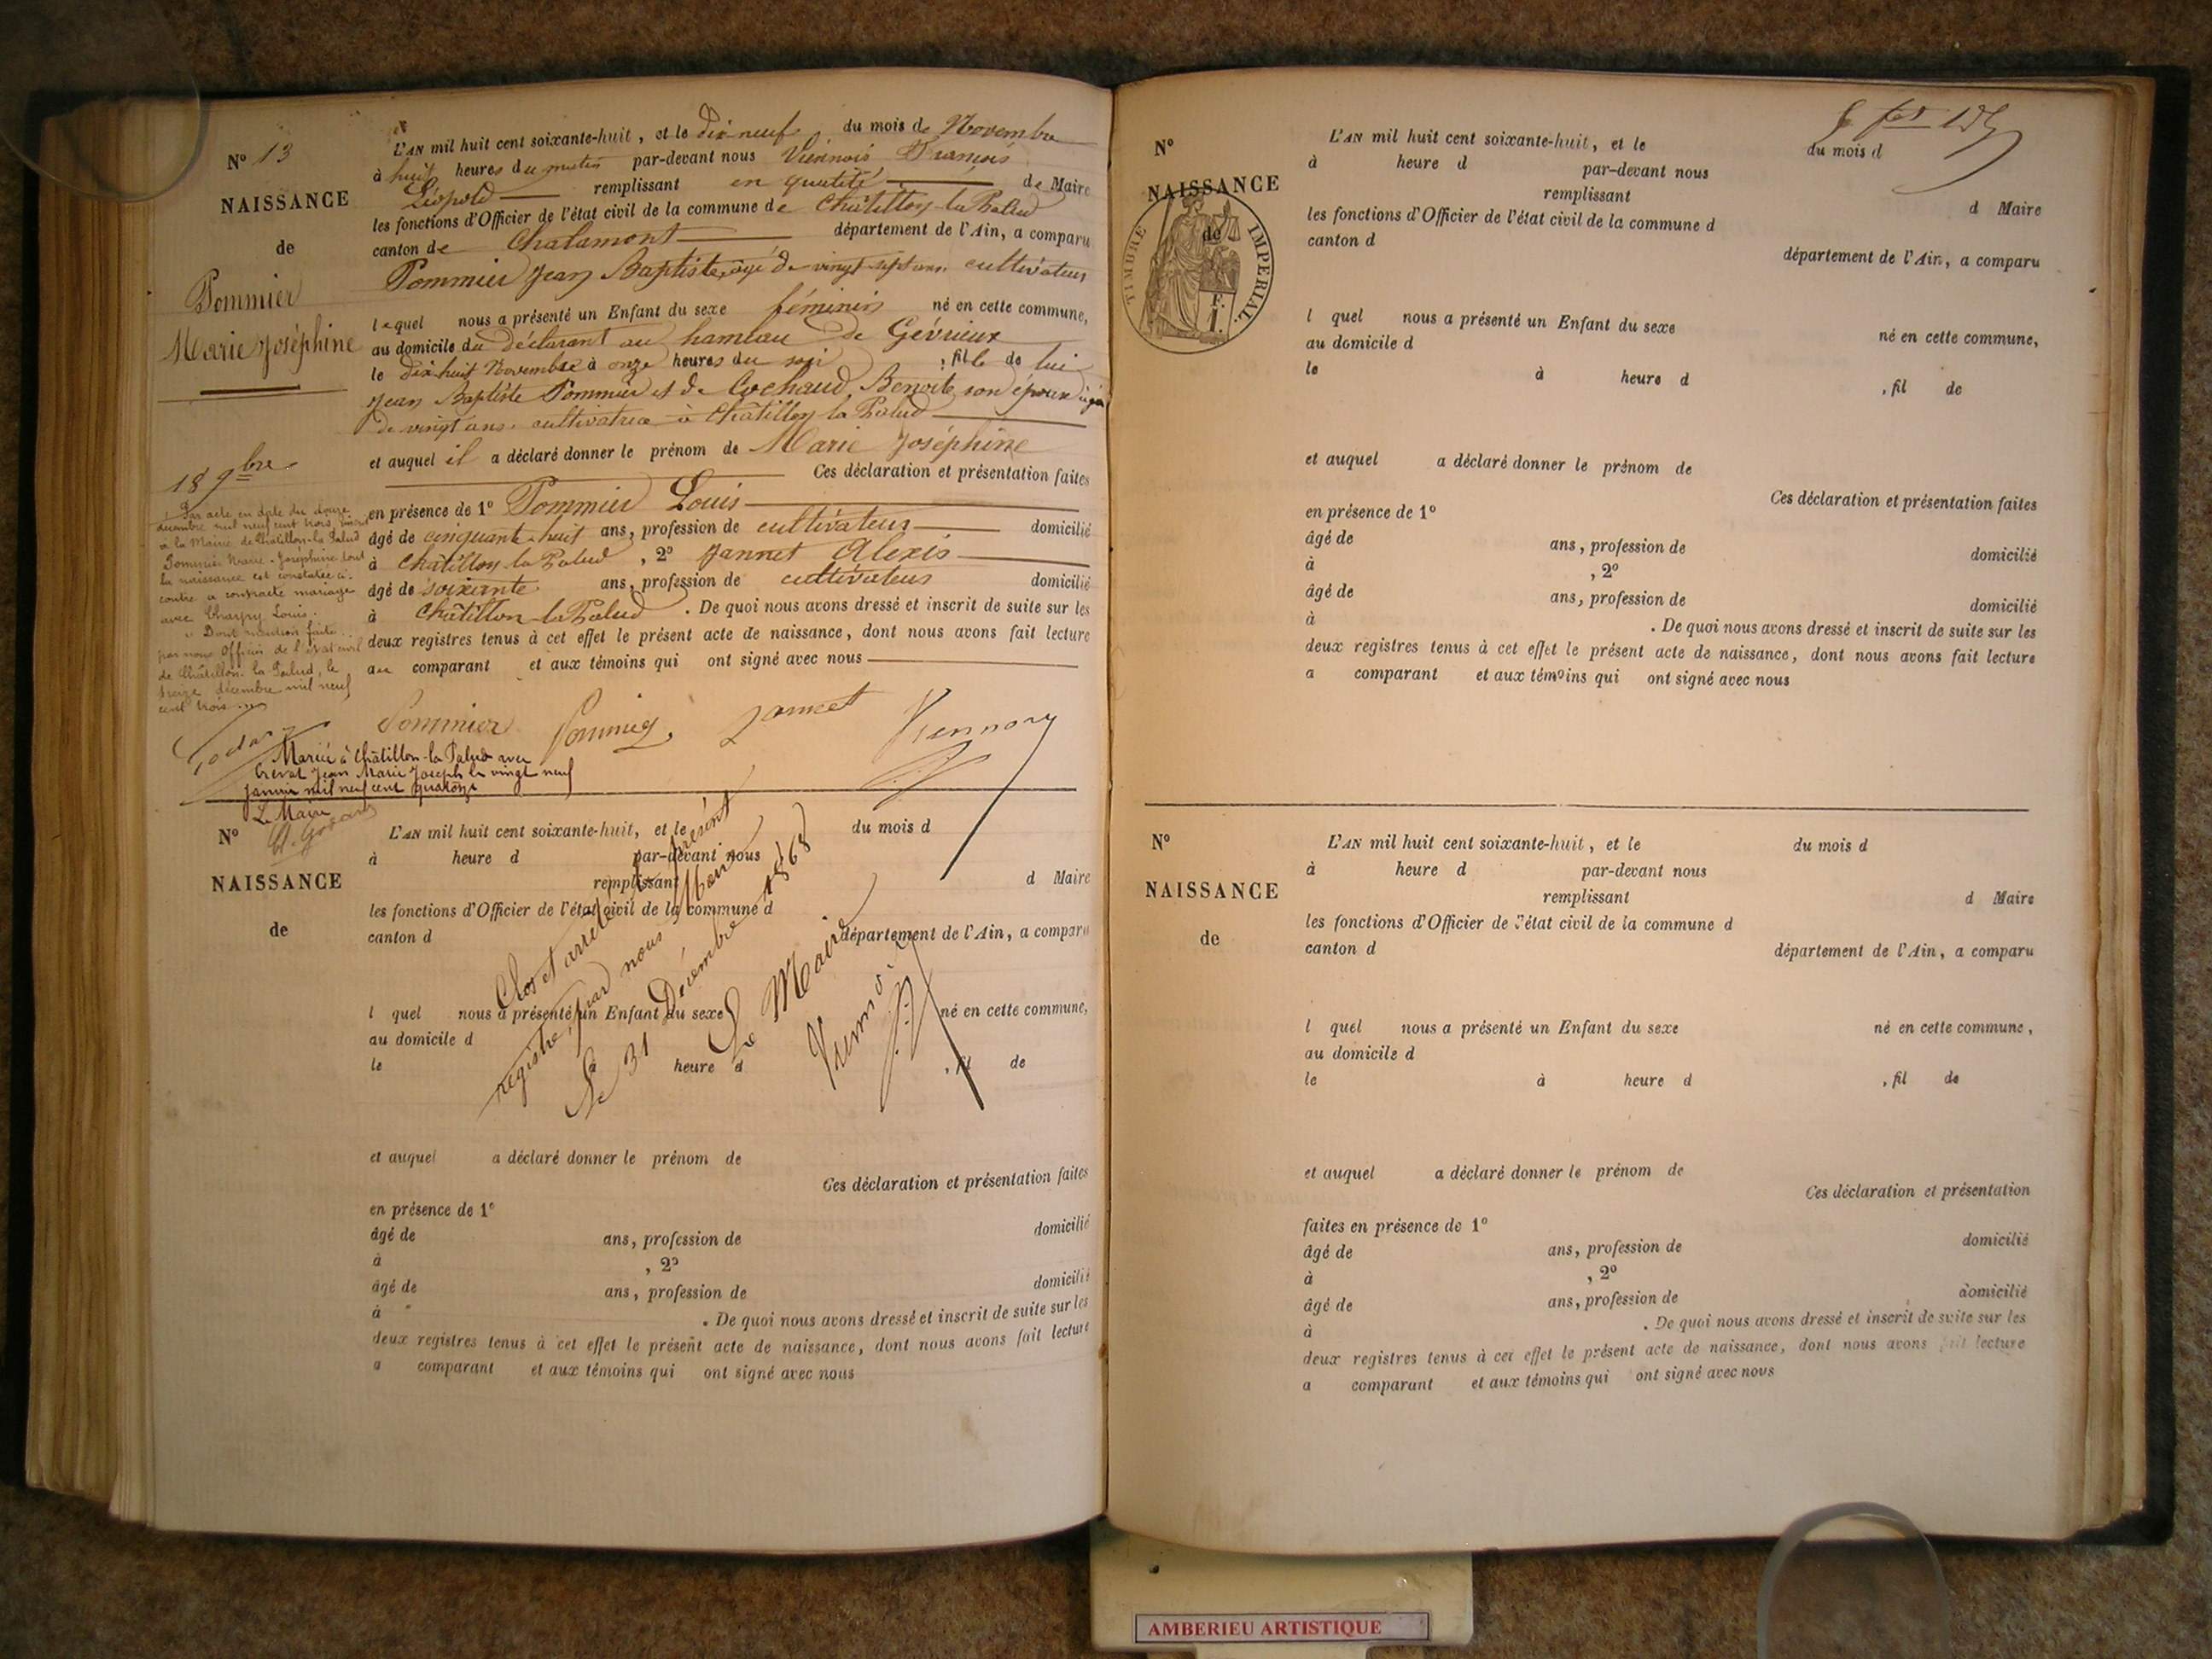 N° 13
NAISSANCE
de
Pommier
Marie Joséphine
18 9bre
L'AN mil huit cent soixante-huit, et le dix-neuf du mois de Novembre
à huit heures du matin par-devant nous Viennois François
Léopold remplissant en qualité de Maire
les fonctions d'Officier de l'état civil de la commune de Châtillon-la-Palud
canton de Chalamont département de l'Ain, a comparu
Pommier Jean Baptiste, âgé de vingt-sept ans cultivateur
lequel nous a présenté un Enfant du sexe féminin né en cette commune,
au domicile du déclarant au hameau de Gévrieux
le dix-huit Novembre à onze heures du soir, fille de lui
Jean Baptiste Pommier et de Cochaud Benoite son épouse âgée
de vingt ans cultivatrice à Châtillon la Palud
et auquel il a déclaré donner le prénom de Marie Joséphine
Ces déclaration et présentation faites
en présence de 1° Pommier Louis
âgé de cinquante-huit ans, profession de cultivateur domicilié
à Châtillon-la-Palud, 2° Jannet Alexis
âgé de soixante ans, profession de cultivateur domicilié
à Châtillon-la-Palud. De quoi nous avons dressé et inscrit de suite sur les
deux registres tenus à cet effet le présent acte de naissance, dont nous avons fait lecture
au comparant et aux témoins qui ont signé avec nous
Par acte en date du douze
décembre mil neuf cent trois, inscrit
à la Mairie de Châtillon-la-Palud
Pommier Marie-Joséphine dont
la naissance est constatée ci-
contre a contracté mariage
avec Charpy Louis.
Dont mention faite
par nous Officier de l'état civil
de Châtillon-la-Palud, le
treize décembre mil neuf
cent trois
Pommier Pommier Jannet Viennois
Mariée à Châtillon-la-Palud avec
Crevat Jean Marie Joseph le vingt neuf
janvier mil neuf cent quatorze
Le Maire
N°
NAISSANCE
de
L'AN mil huit cent soixante-huit, et le du mois d
à heure d par-devant nous
remplissant d Maire
les fonctions d'Officier de l'état civil de la commune d
canton d département de l'Ain, a comparu
l quel nous a présenté un Enfant du sexe né en cette commune,
au domicile d
le à heure d , fil de
et auquel a déclaré donner le prénom de
Ces déclaration et présentation faites
en présence de 1°
âgé de ans, profession de domicilié
à , 2°
âgé de ans, profession de domicilié
à . De quoi nous avons dressé et inscrit de suite sur les
deux registres tenus à cet effet le présent acte de naissance, dont nous avons fait lecture
a comparant et aux témoins qui ont signé avec nous
Clos et arrêté le présent
registre, par nous Maire
Le 31 Décembre 1868
Le Maire
Viennois
N°
NAISSANCE
de
TIMBRE IMPERIAL
L'AN mil huit cent soixante-huit, et le du mois d
à heure d par-devant nous
remplissant d Maire
les fonctions d'Officier de l'état civil de la commune d
canton d département de l'Ain, a comparu
l quel nous a présenté un Enfant du sexe né en cette commune,
au domicile d
le à heure d , fil de
et auquel a déclaré donner le prénom de
Ces déclaration et présentation faites
en présence de 1°
âgé de ans, profession de domicilié
à , 2°
âgé de ans, profession de domicilié
à . De quoi nous avons dressé et inscrit de suite sur les
deux registres tenus à cet effet le présent acte de naissance, dont nous avons fait lecture
a comparant et aux témoins qui ont signé avec nous
N°
NAISSANCE
de
L'AN mil huit cent soixante-huit, et le du mois d
à heure d par-devant nous
remplissant d Maire
les fonctions d'Officier de l'état civil de la commune d
canton d département de l'Ain, a comparu
l quel nous a présenté un Enfant du sexe né en cette commune,
au domicile d
le à heure d , fil de
et auquel a déclaré donner le prénom de
Ces déclaration et présentation
faites en présence de 1°
âgé de ans, profession de domicilié
à , 2°
âgé de ans, profession de domicilié
à . De quoi nous avons dressé et inscrit de suite sur les
deux registres tenus à cet effet le présent acte de naissance, dont nous avons fait lecture
a comparant et aux témoins qui ont signé avec nous
AMBERIEU ARTISTIQUE